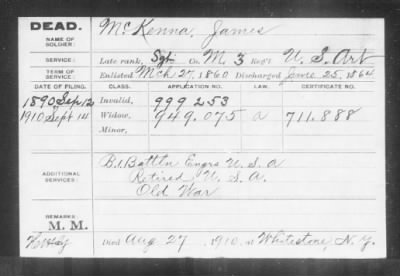 DEAD.
NAME OF SOLDIER: McKenna, James
SERVICE: Late rank, Sgt Co. M 3 Reg't U. S. Art
TERM OF SERVICE: Enlisted Mch 27, 1860 Discharged June 25, 1864
DATE OF FILING. CLASS. APPLICATION NO. LAW. CERTIFICATE NO.
1890 Sep 12 Invalid, 999 253
1910 Sept 14 Widow, 949.075 a 711.888
Minor,
ADDITIONAL SERVICES: B. Battln Engrs U S A
Retired U. S. A.
Old War
REMARKS: M. M.
Died Aug 27, 1910, at Whitestone, N. Y.